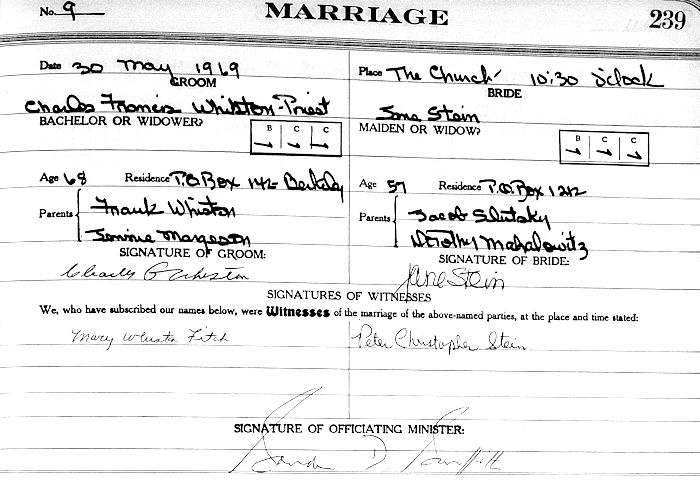 No. 9 MARRIAGE 239
Date 30 May 1969
Place The Church 10:30 o'clock
GROOM
BRIDE
Charles Francis Whiston-Priest
Stein
BACHELOR OR WIDOWER?
MAIDEN OR WIDOW?
B C C
B C C
Age 68 Residence P.O Box 142 Berkeley
Age 57 Residence P.O Box 1212
Parents Frank Whiston
Parents Jacob Slutsky
Dorothy Mahalowitz
SIGNATURE OF GROOM:
SIGNATURE OF BRIDE:
Charles F Whiston
Jane Stein
SIGNATURES OF WITNESSES
We, who have subscribed our names below, were Witnesses of the marriage of the above-named parties, at the place and time stated:
Mary Whiston Fitch
Peter Christopher Stein
SIGNATURE OF OFFICIATING MINISTER: